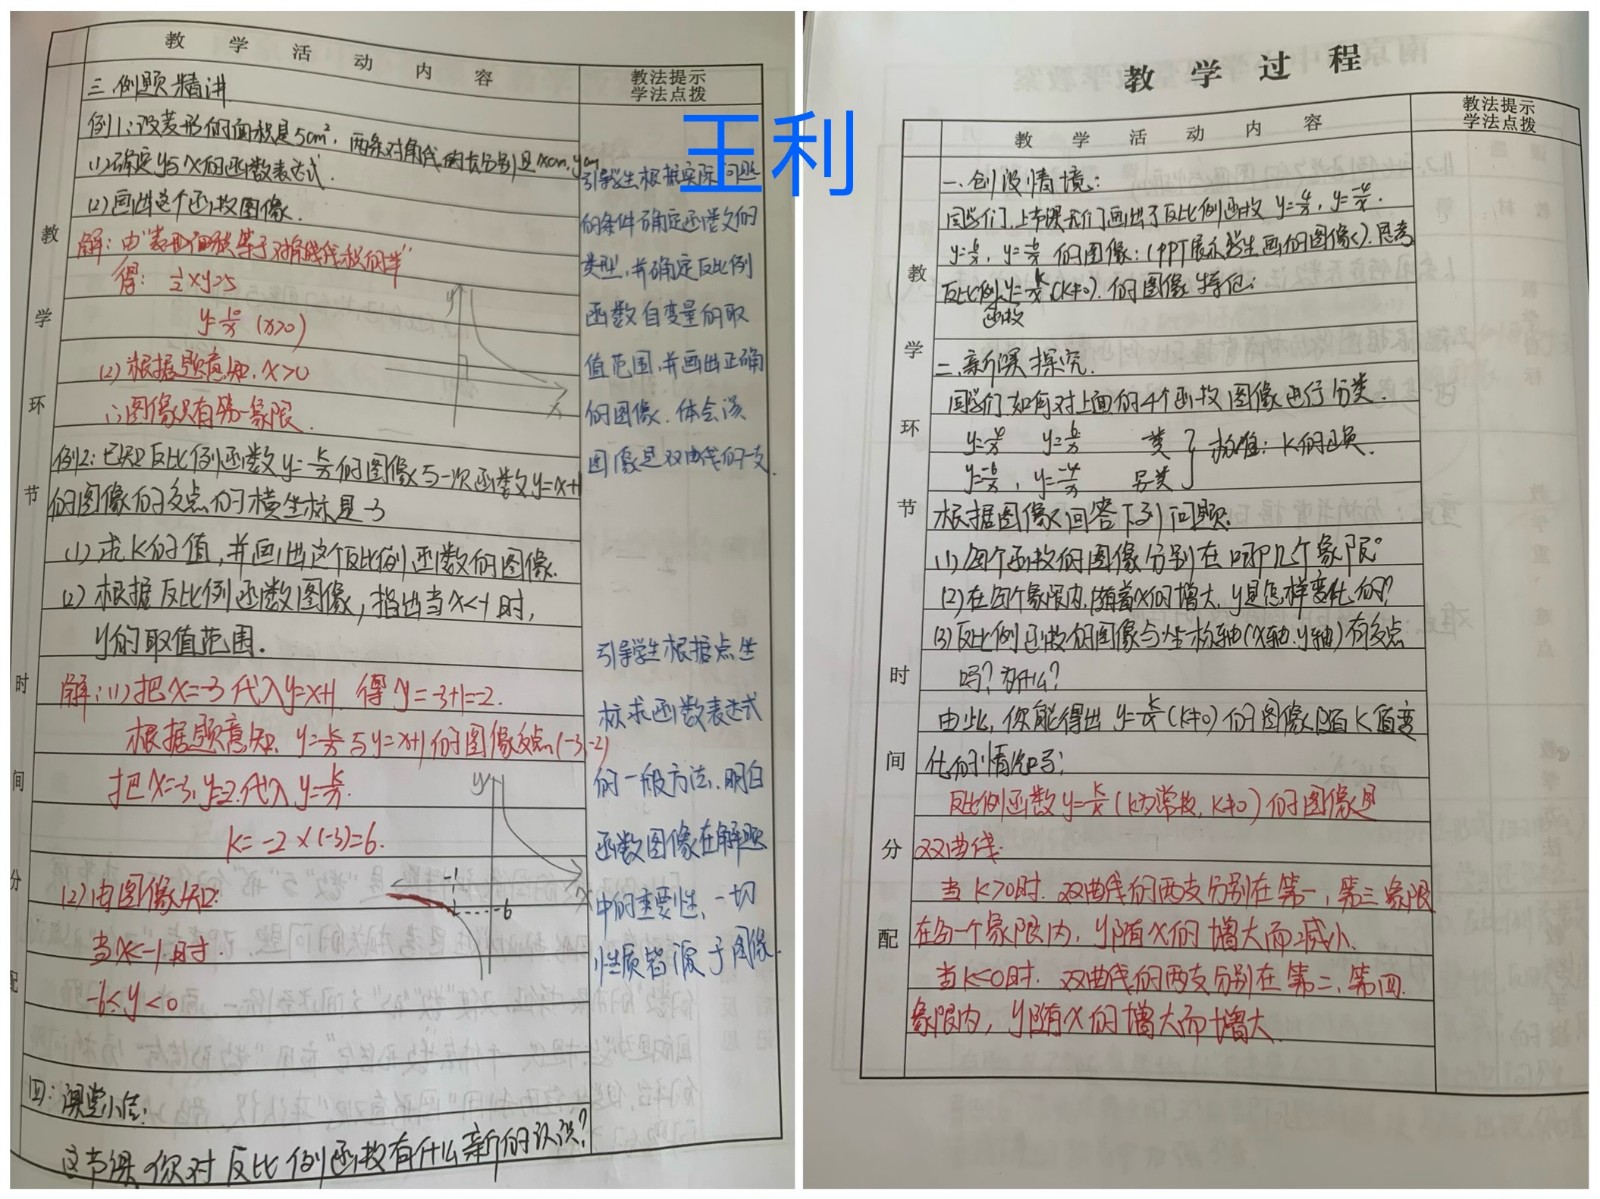 教学活动内容
教法提示
学法点拨
三、例题精讲
例1:设菱形的面积是5cm²,两条对角线的长分别是xcm,ycm
(1)确定y与x的函数表达式.
(2)画出这个函数图像.
解:由"菱形面积等于对角线乘积的半"
得: ½xy=5
y=10/x (x>0)
(2)根据题意知,x>0
∴图像只有第一象限.
例2:已知反比例函数y=k/x的图像与一次函数y=x+1
的图像的交点的横坐标是-3
(1)求k的值,并画出这个反比例函数的图像.
(2)根据反比例函数图像,指出当x<-1时,
y的取值范围.
解:(1)把x=-3代入y=x+1,得y=-3+1=-2.
根据题意知,y=k/x与y=x+1的图像交点(-3,-2)
把x=-3,y=-2代入y=k/x.
k=-2×(-3)=6.
(2)由图像知:
当x<-1时.
-6<y<0
四:课堂小结:
这节课,你对反比例函数有什么新的认识?
引导学生根据实际问题
的条件确定函数的
类型,并确定反比例
函数自变量的取
值范围,并画出正确
的图像.体会该
图像是双曲线的一支.
引导学生根据点坐
标求函数表达式
的一般方法.明白
函数图像在解题
中的重要性,一切
性质皆源于图像.
y
x
y
x
-1
-6
教学环节时间分配
王利
教学过程
教学活动内容
教法提示
学法点拨
一、创设情境:
同学们,上节课我们画出了反比例函数 y=4/x,y=-4/x.
y=6/x, y=-6/x 的图像:(PPT展示学生画的图像).思考
反比例函数y=k/x(k≠0).的图像特征:
二、新课探究.
同学们如何对上面的4个函数图像进行分类.
y=4/x y=6/x 一类
y=-6/x , y=-4/x 另一类 } 标准:K的正负.
根据图像回答下列问题.
(1)每个函数的图像分别在哪几个象限?
(2)在每个象限内,随着x的增大,y是怎样变化的?
(3)反比例函数的图像与坐标轴(x轴.y轴)有交点
吗?为什么?
由此,你能得出y=k/x(k≠0)的图像随K值变
化的情况吗:
反比例函数y=k/x(k为常数,k≠0)的图像是
双曲线.
当k>0时.双曲线的两支分别在第一,第三象限
在每一个象限内,y随x的增大而减小.
当k<0时.双曲线的两支分别在第二,第四.
象限内,y随x的增大而增大.
教学环节时间分配